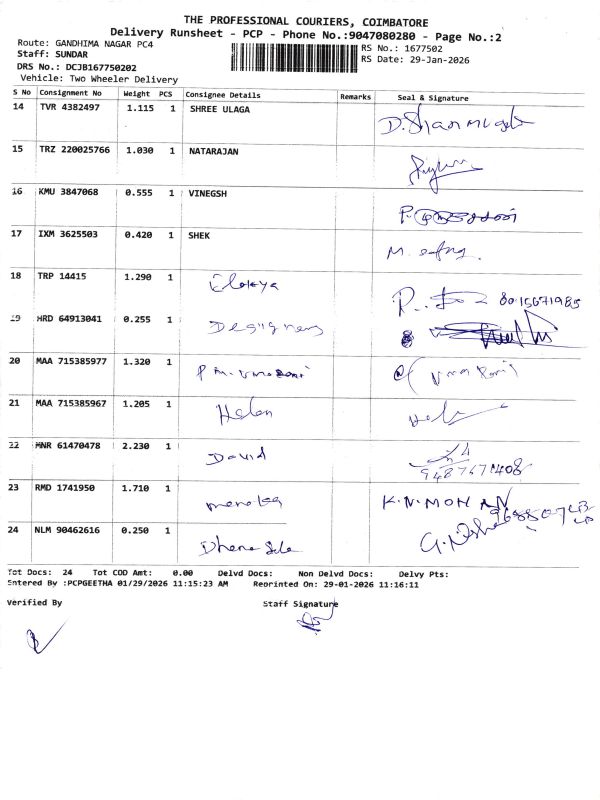 THE PROFESSIONAL COURIERS, COIMBATORE
Delivery Runsheet - PCP - Phone No.:9047080280 - Page No.:2
Route: GANDHIMA NAGAR PC4 RS No.: 1677502
Staff: SUNDAR RS Date: 29-Jan-2026
DRS No.: DCJB167750202
Vehicle: Two Wheeler Delivery
S No Consignment No Weight PCS Consignee Details Remarks Seal & Signature
14 TVR 4382497 1.115 1 SHREE ULAGA D.Shanmuga
15 TRZ 220025766 1.030 1 NATARAJAN
16 KMU 3847068 0.555 1 VINEGSH
17 IXM 3625503 0.420 1 SHEK M.
18 TRP 14415 1.290 1 Elakya 8015671985
19 HRD 64913041 0.255 1 Designers
20 MAA 715385977 1.320 1 P M. Umarani Umarani
21 MAA 715385967 1.205 1 Helen Helen
22 HNR 61470478 2.230 1 David 9487671408
23 RMD 1741950 1.710 1 K.N.MOHAN
24 NLM 90462616 0.250 1 Dhana G.Nisha
Tot Docs: 24 Tot COD Amt: 0.00 Delvd Docs: Non Delvd Docs: Delvy Pts:
Entered By :PCPGEETHA 01/29/2026 11:15:23 AM Reprinted On: 29-01-2026 11:16:11
Verified By Staff Signature